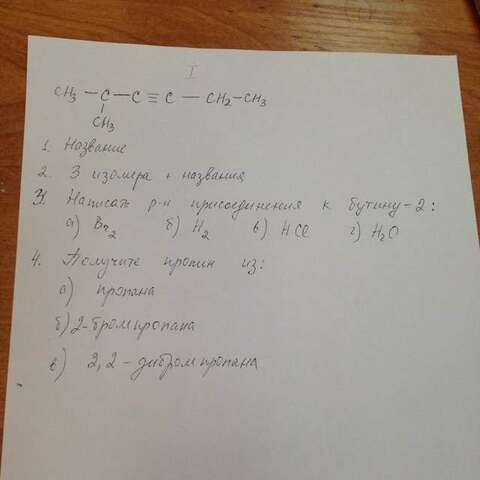 I
CH₃ – C – C ≡ C – CH₂ – CH₃
CH₃
1. Название
2. 3 изомера + названия
3. Написать р-и присоединения к бутину-2:
а) Br₂ б) H₂ в) HCl г) H₂O
4. Получите пропин из:
а) пропана
б) 2-бромпропана
в) 2,2-дибромпропана